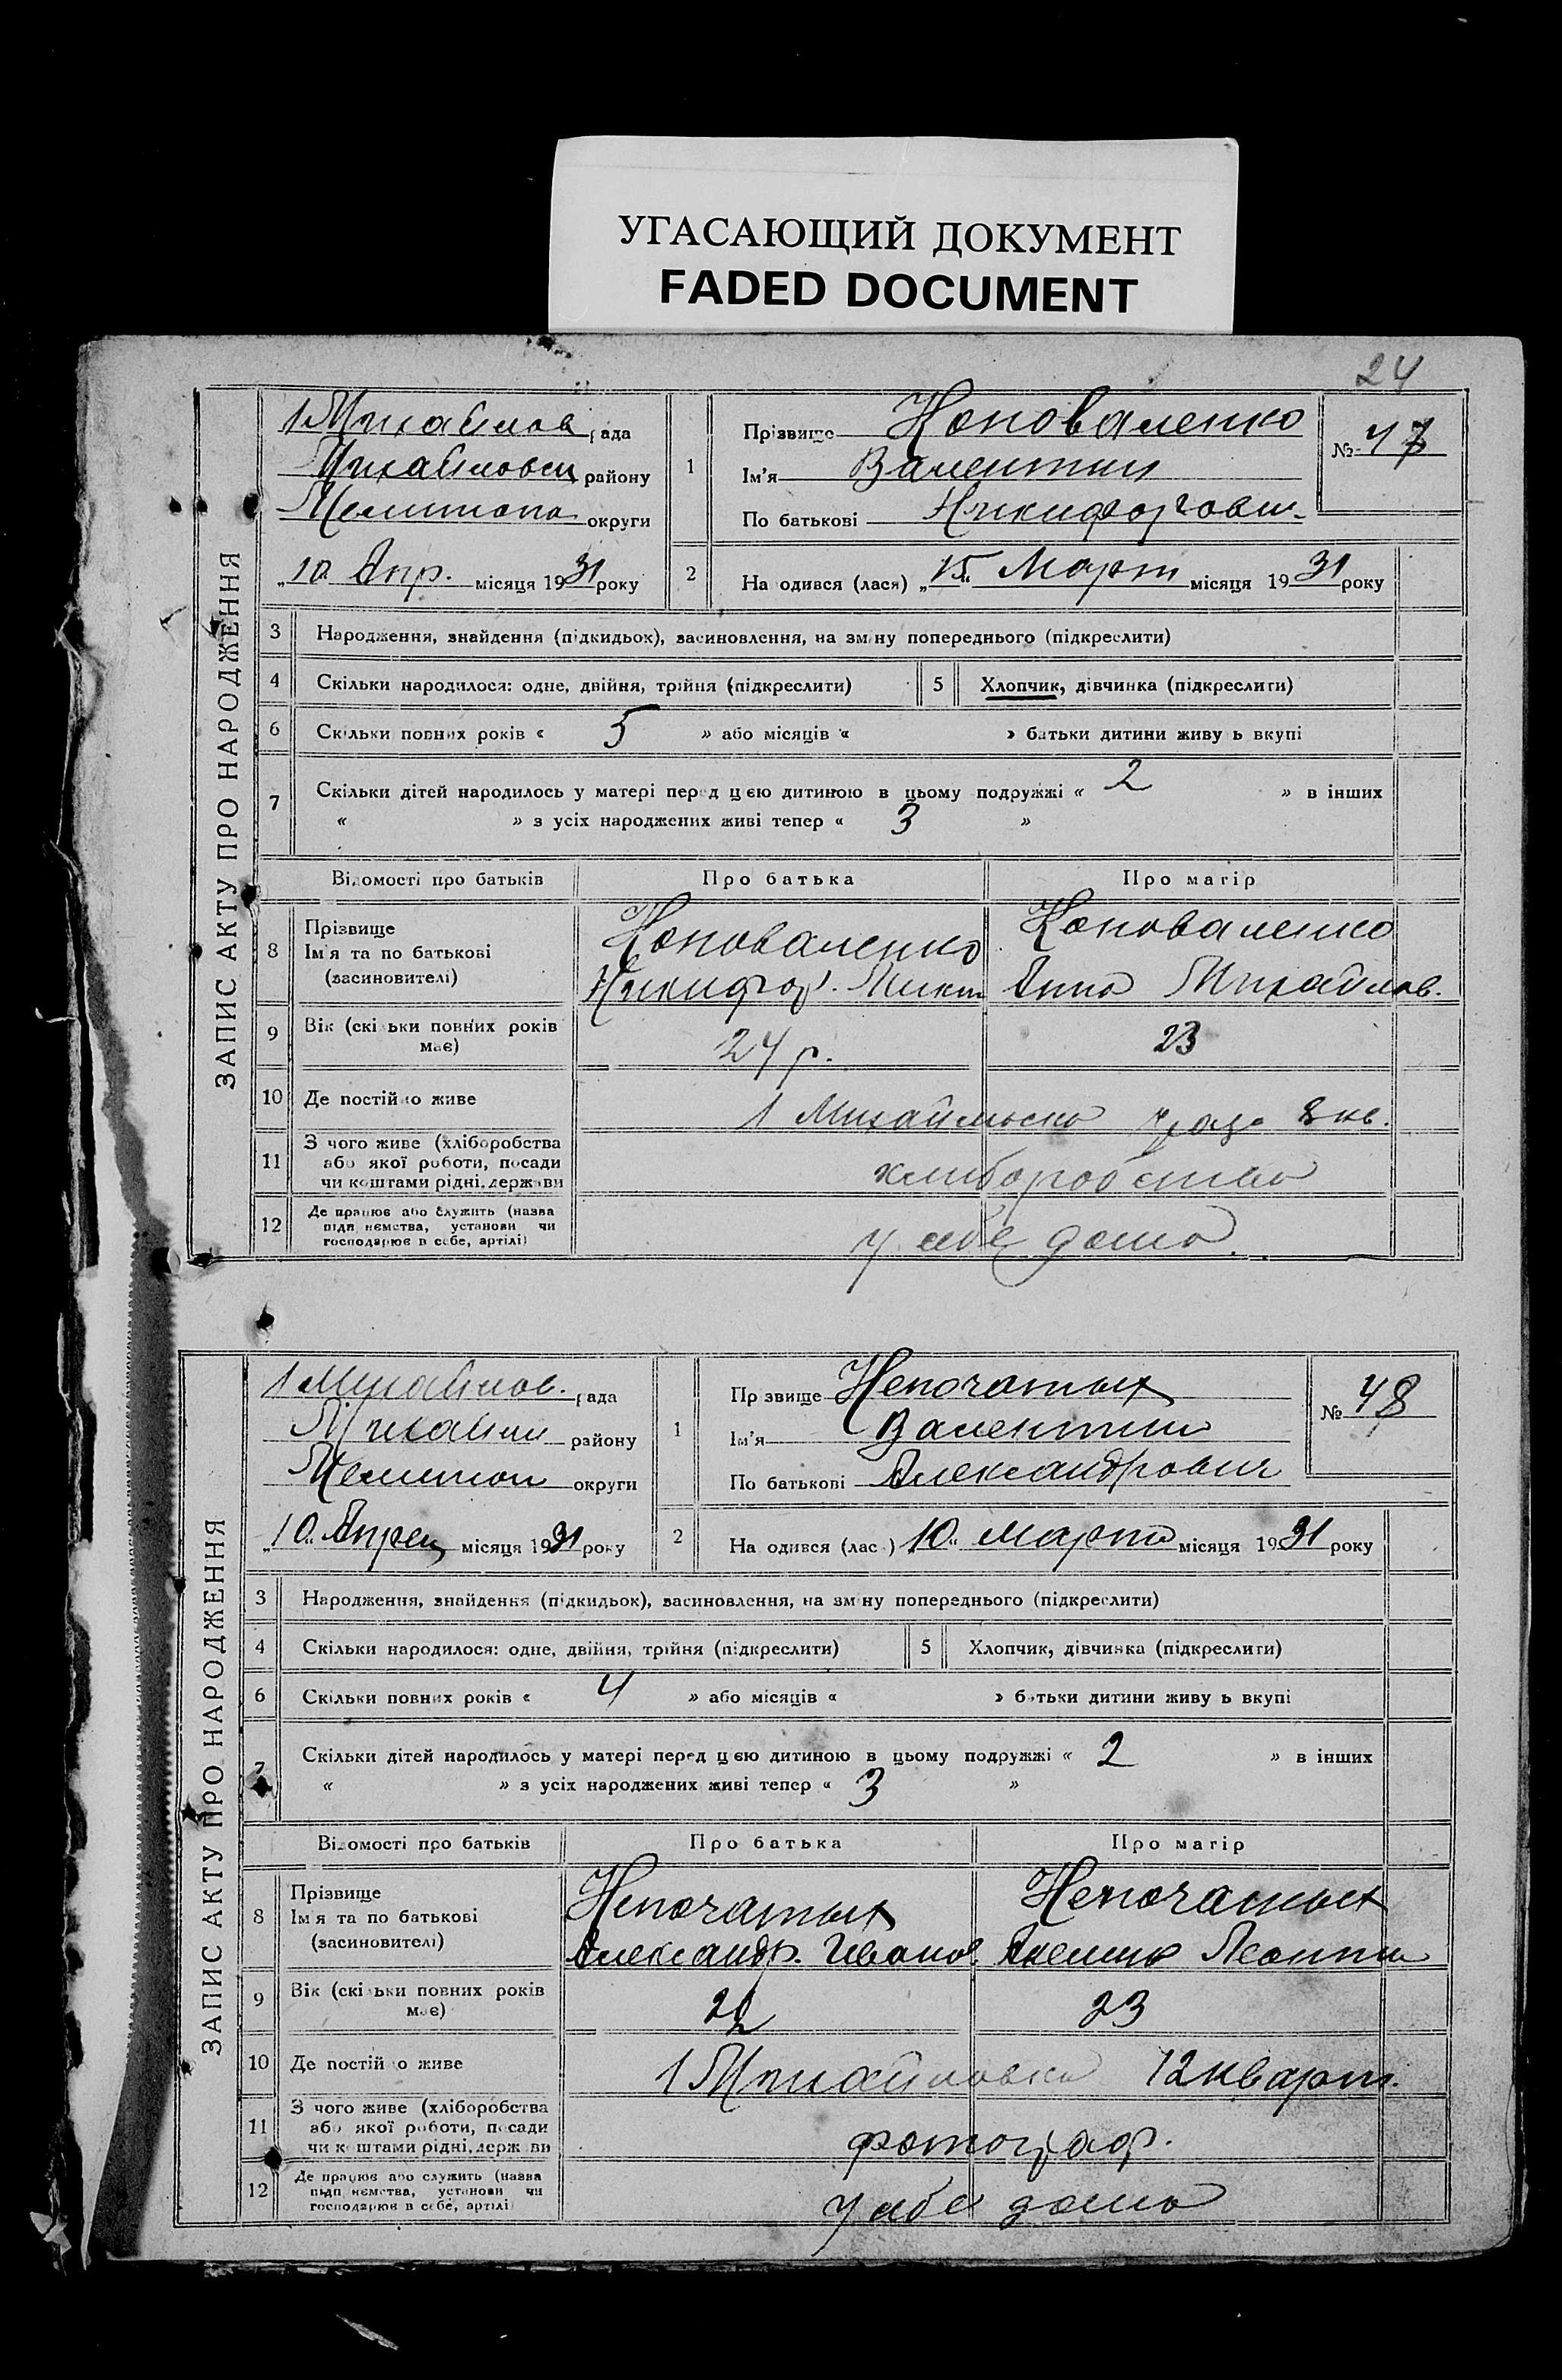 УГАСАЮЩИЙ ДОКУМЕНТ
FADED DOCUMENT
24
ЗАПИС АКТУ ПРО НАРОДЖЕННЯ
1 Михайлов рада
Михайловск району
Мелитопо округи
„10 Апр. місяця 1931 року
1
Прізвище Коноваленко
Ім'я Валентин
По батькові Никифорови
№ 47
2 На одився (лася) „15“ Март місяця 1931 року
3 Народження, знайдення (підкидьок), засиновлення, на зміну попереднього (підкреслити)
4 Скільки народилося: одне, двійня, трійня (підкреслити) 5 Хлопчик, дівчинка (підкреслити)
6 Скільки повних років « 5 » або місяців « » батьки дитини живу ь вкупі
7 Скільки дітей народилось у матері перед цею дитиною в цьому подружжі « 2 » в інших
« » з усіх народжених живі тепер « 3 »
Відомості про батьків Про батька Про матір
8 Прізвище Коноваленко Коноваленко
Ім'я та по батькові
(засиновителі) Никифор. Микит Анна Михайлов.
9 Вік (скільки повних років має) 24 р. 23
10 Де постійно живе 1 Михайлівка 8 кв.
11 З чого живе (хліборобства
або якої роботи, посади
чи коштами рідні, держави хлиборобство
12 Де працює або служить (назва
підп ємства, установи чи
господарює в себе, артілі) у себе дома.
ЗАПИС АКТУ ПРО НАРОДЖЕННЯ
1 Михайлов. рада
Михайл району
Мелитоп округи
„10“ Апрел місяця 1931 року
1
Пр звище Непочатых
Ім'я Валентин
По батькові Александрович
№ 48
2 На одився (лас ) 10“ Марта місяця 1931 року
3 Народження, знайдення (підкидьок), засиновлення, на зміну попереднього (підкреслити)
4 Скільки народилося: одне, двійня, трійня (підкреслити) 5 Хлопчик, дівчинка (підкреслити)
6 Скільки повних років « 4 » або місяців « » батьки дитини живу ь вкупі
7 Скільки дітей народилось у матері перед цею дитиною в цьому подружжі « 2 » в інших
« » з усіх народжених живі тепер « 3 »
Відомості про батьків Про батька Про матір
8 Прізвище Непочатых Непочатых
Ім'я та по батькові
(засиновителі) Александр. Иванов Леонти
9 Вік (скільки повних років має) 22 23
10 Де постій о живе 1 Михайловка 12 кварт.
11 З чого живе (хліборобства
або якої роботи, посади
чи коштами рідні, держави фотограф.
12 Де працює або служить (назва
підп ємства, установи чи
господарює в себе, артілі) у себе дома